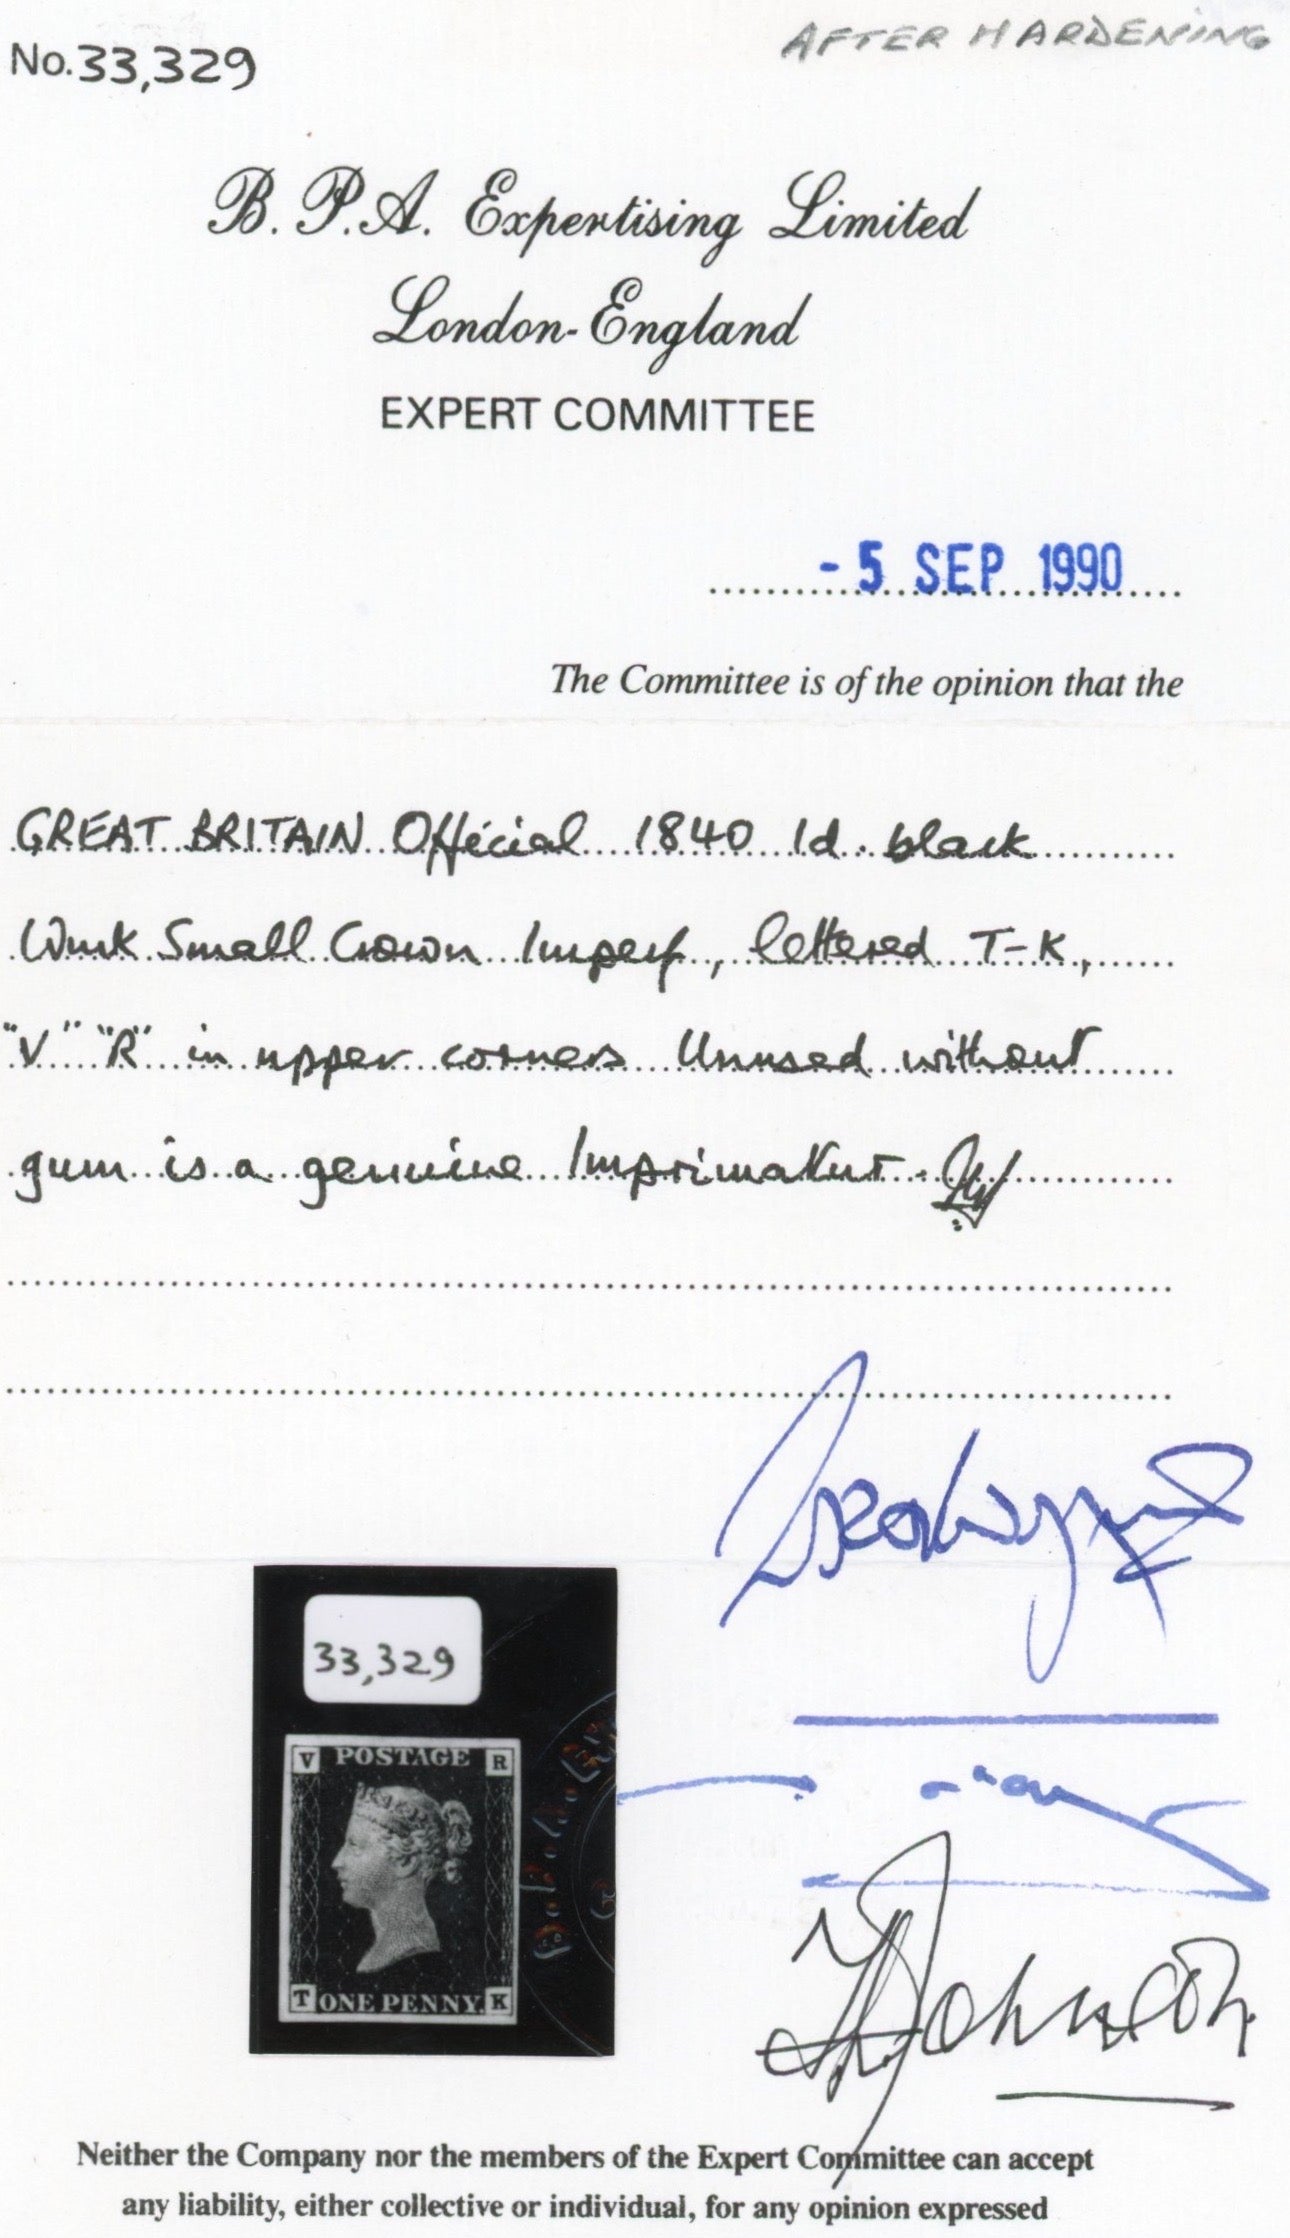 No. 33,329
AFTER HARDENING
B. P. A. Expertising Limited
London-England
EXPERT COMMITTEE
- 5 SEP 1990
The Committee is of the opinion that the
GREAT BRITAIN Official 1840 1d. black
Wmk Small Crown Imperf, lettered T-K,
"V" "R" in upper corners Unused without
gum is a genuine Imprimatur.
33,329
V POSTAGE R
T ONE PENNY. K
Johnson
Neither the Company nor the members of the Expert Committee can accept
any liability, either collective or individual, for any opinion expressed